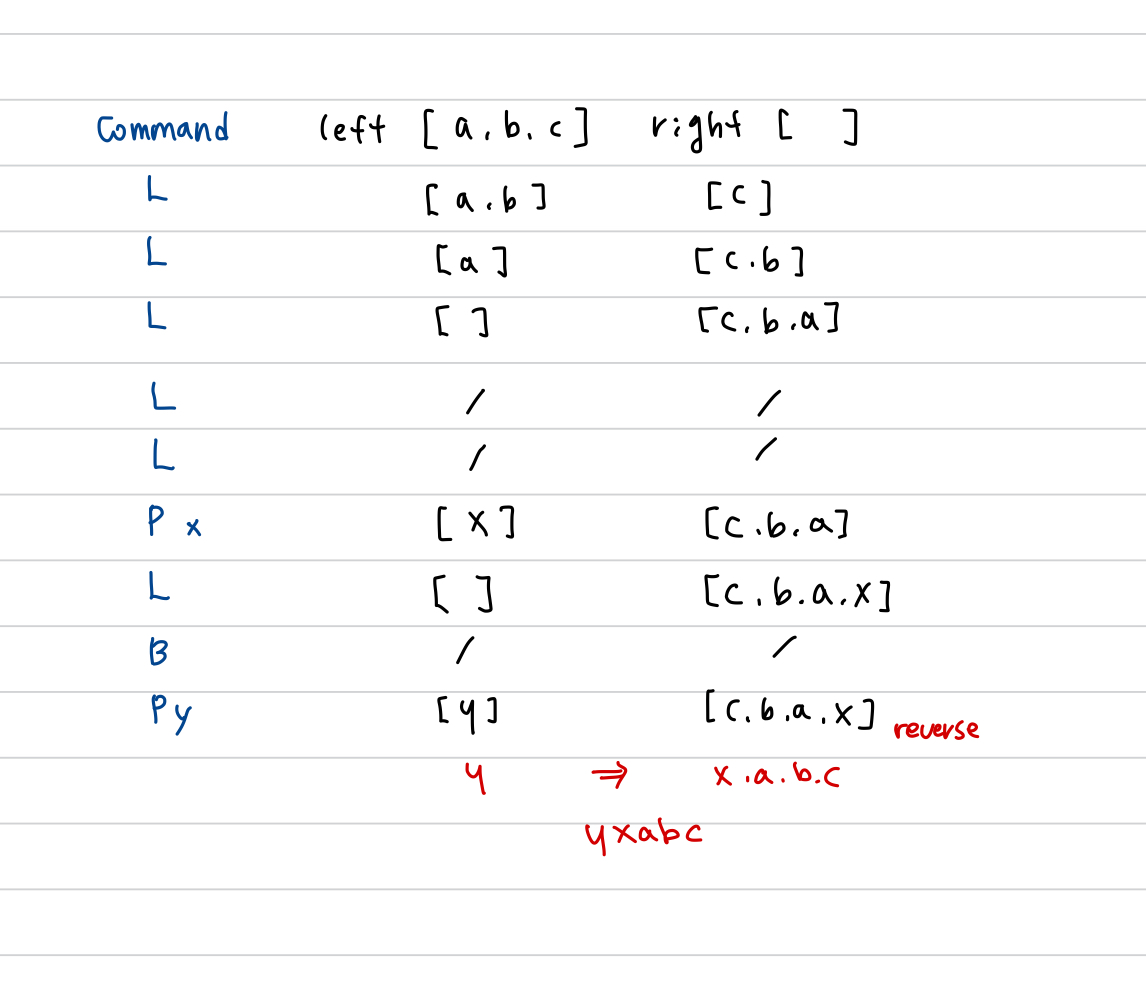 Command left [a.b.c] right [ ]
L [a.b] [c]
L [a] [c.b]
L [ ] [c.b.a]
L / /
L / /
P x [x] [c.b.a]
L [ ] [c.b.a.x]
B / /
P y [y] [c.b.a.x] reverse
y ⇒ x.a.b.c
yxabc